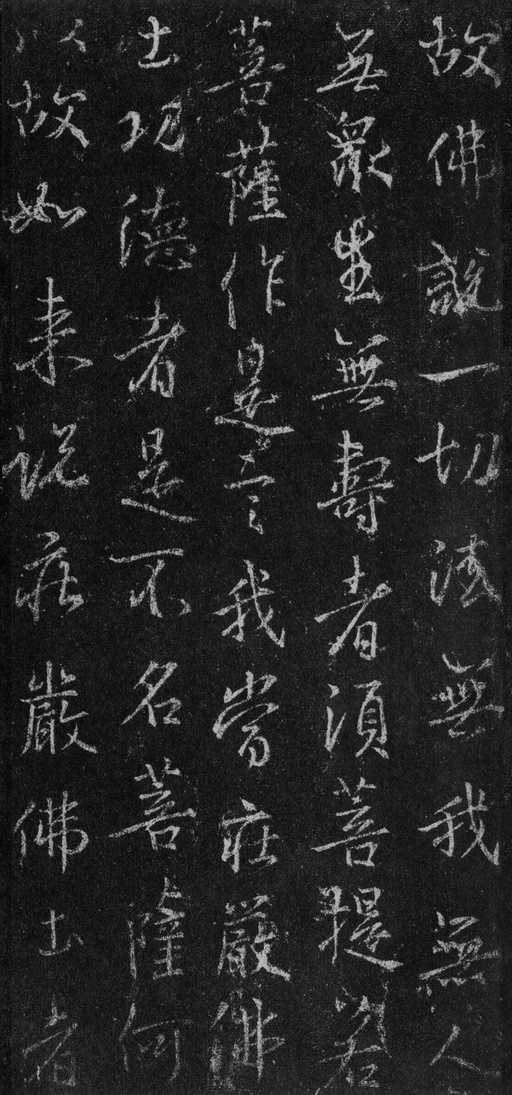 故佛說一切法無我無人
無眾生無壽者須菩提若
菩薩作是言我當莊嚴佛
土功德者是不名菩薩何
以故如来說莊嚴佛土者